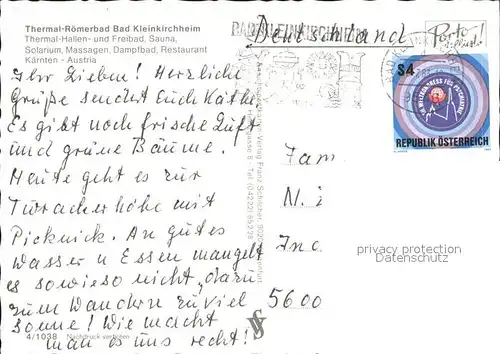 Thermal-Römerbad Bad Kleinkirchheim
Thermal-Hallen- und Freibad, Sauna,
Solarium, Massagen, Dampfbad, Restaurant
Kärnten - Austria
Ihr Lieben! Herzliche
Grüße sendet Euch Käthe
Es gibt noch frische Luft
und grüne Bäume.
Heute geht es zur
Turacherhöhe mit
Picknick. An gutes
Wasser u Essen mangelt
es sowieso nicht, dazu
zum Wandern zuviel
Sonne! Wie macht
man es uns recht!
4/1038 Nachdruck verboten
Verlag Franz Schilcher
Deutschland
Porto
S4
REPUBLIK ÖSTERREICH
Fam.
N.
Inc
5600
privacy protection
Datenschutz